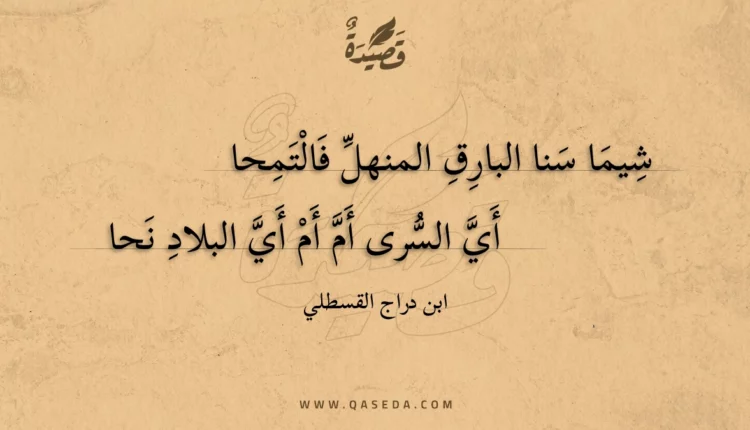 قَصِيْدَةٌ
شِيمَا سَنا البارِقِ المنهلِّ فَالْتَمِحا
أَيَّ السُّرى أَمَّ أَمْ أَيَّ البلادِ نَحا
ابن دراج القسطلي
WWW.QASEDA.COM